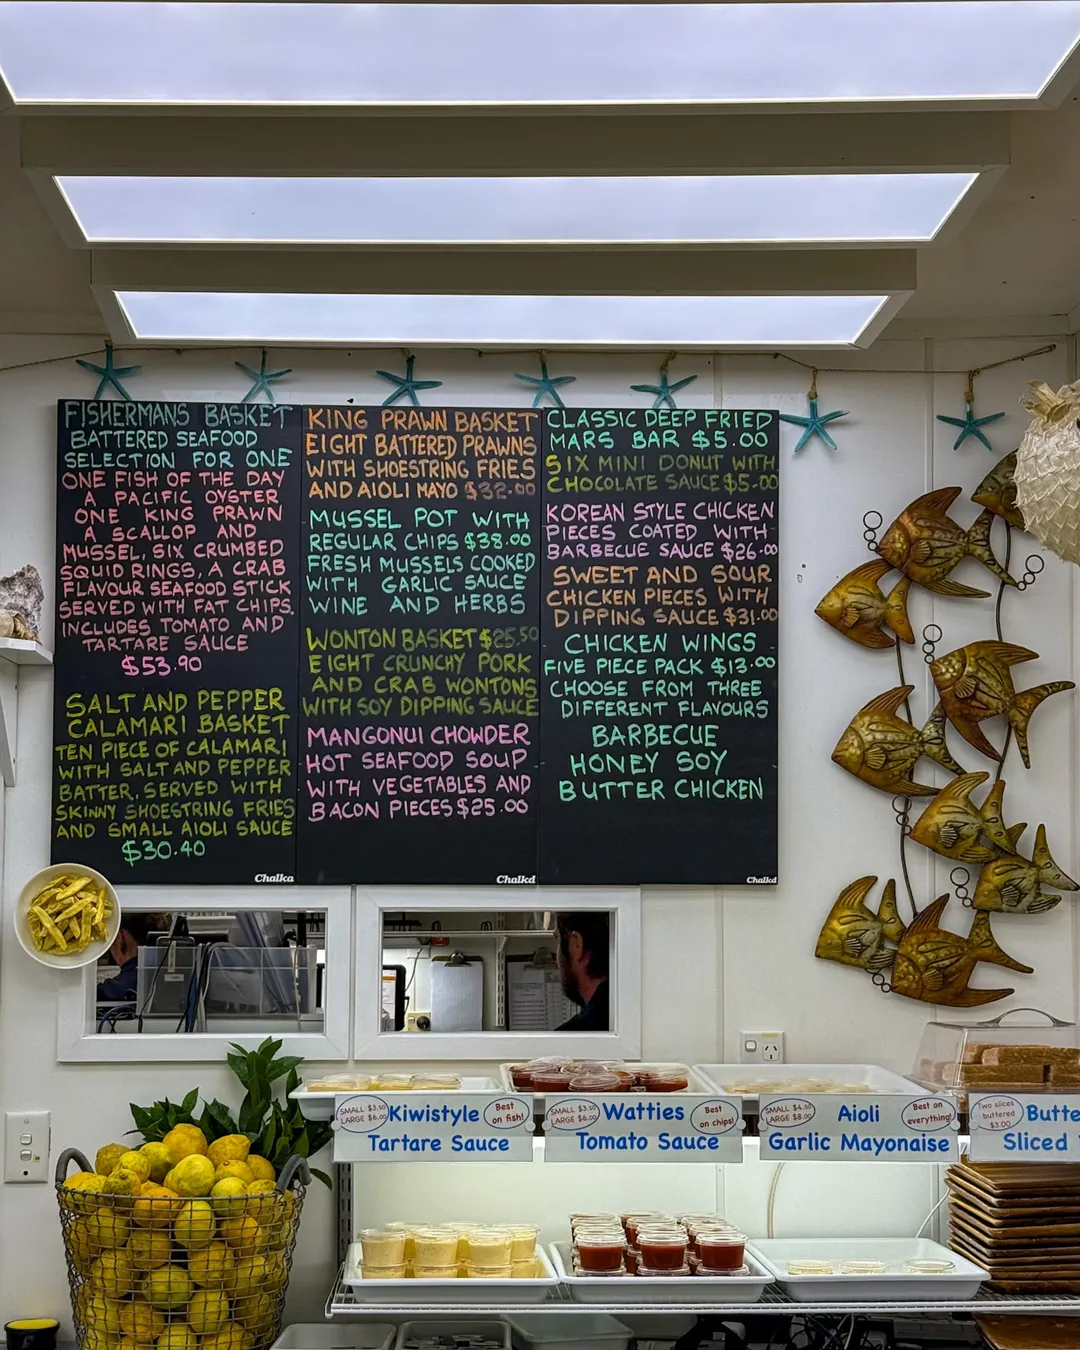 FISHERMANS BASKET
BATTERED SEAFOOD
SELECTION FOR ONE
ONE FISH OF THE DAY
A PACIFIC OYSTER
ONE KING PRAWN
A SCALLOP AND
MUSSEL, SIX CRUMBED
SQUID RINGS, A CRAB
FLAVOUR SEAFOOD STICK
SERVED WITH FAT CHIPS.
INCLUDES TOMATO AND
TARTARE SAUCE
$53.90
SALT AND PEPPER
CALAMARI BASKET
TEN PIECE OF CALAMARI
WITH SALT AND PEPPER
BATTER, SERVED WITH
SKINNY SHOESTRING FRIES
AND SMALL AIOLI SAUCE
$30.40
Chalkd
KING PRAWN BASKET
EIGHT BATTERED PRAWNS
WITH SHOESTRING FRIES
AND AIOLI MAYO $32.00
MUSSEL POT WITH
REGULAR CHIPS $38.00
FRESH MUSSELS COOKED
WITH GARLIC SAUCE
WINE AND HERBS
WONTON BASKET $25.50
EIGHT CRUNCHY PORK
AND CRAB WONTONS
WITH SOY DIPPING SAUCE
MANGONUI CHOWDER
HOT SEAFOOD SOUP
WITH VEGETABLES AND
BACON PIECES $25.00
Chalkd
CLASSIC DEEP FRIED
MARS BAR $5.00
SIX MINI DONUT WITH
CHOCOLATE SAUCE $5.00
KOREAN STYLE CHICKEN
PIECES COATED WITH
BARBECUE SAUCE $26.00
SWEET AND SOUR
CHICKEN PIECES WITH
DIPPING SAUCE $31.00
CHICKEN WINGS
FIVE PIECE PACK $13.00
CHOOSE FROM THREE
DIFFERENT FLAVOURS
BARBECUE
HONEY SOY
BUTTER CHICKEN
Chalkd
SMALL $3.50
LARGE $6.00
Kiwistyle
Tartare Sauce
Best on fish!
SMALL $3.50
LARGE $6.00
Watties
Tomato Sauce
Best on chips!
SMALL $4.50
LARGE $8.00
Aioli
Garlic Mayonaise
Best on everything!
Two slices
buttered
$3.00
Butte
Sliced